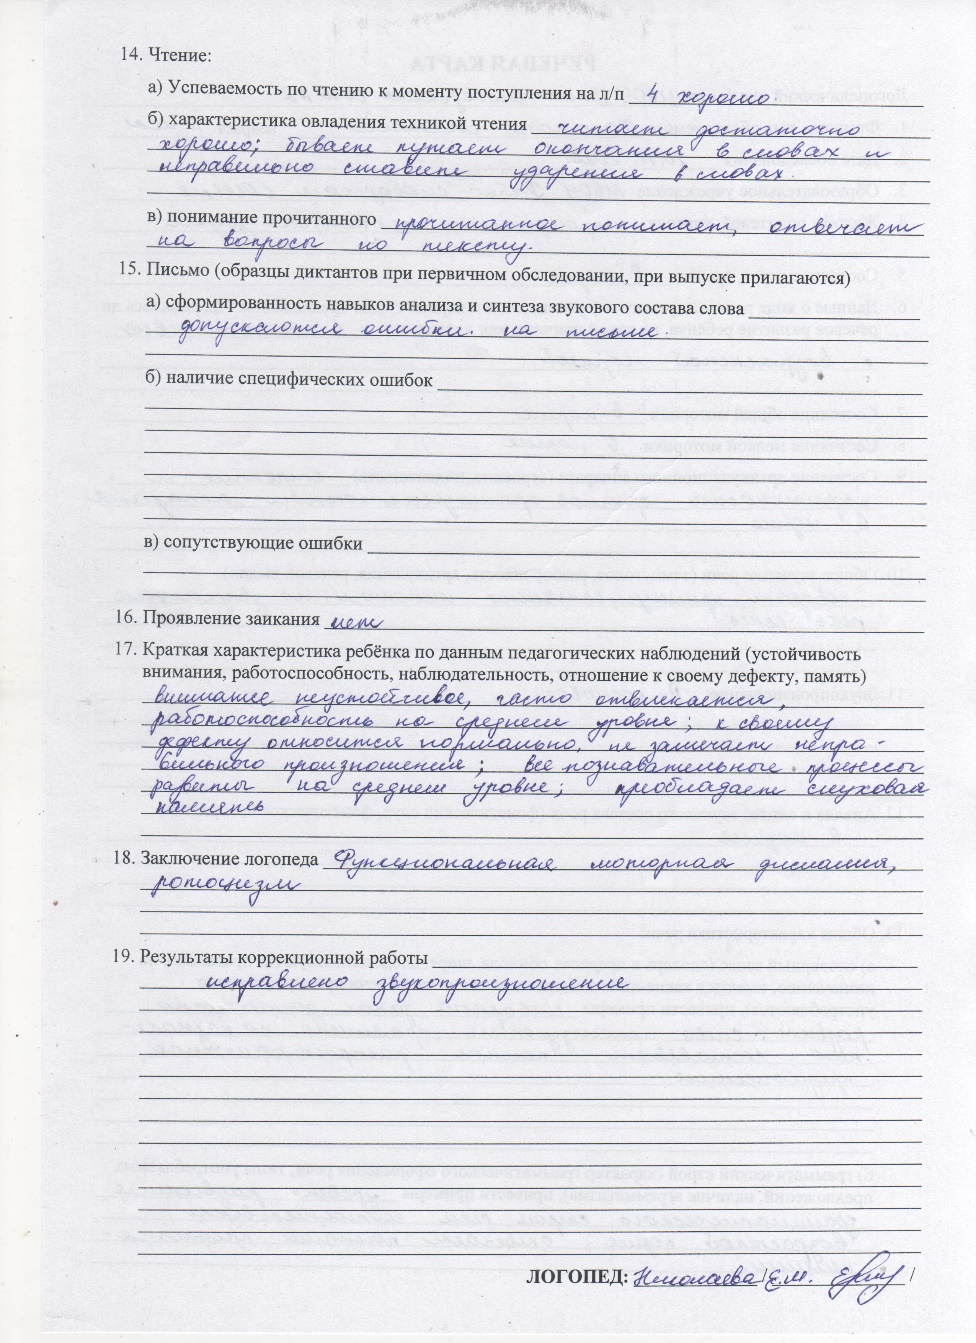 14. Чтение:
а) Успеваемость по чтению к моменту поступления на л/п 4 хорошо
б) характеристика овладения техникой чтения читает достаточно
хорошо; бывает путает окончания в словах и
неправильно ставит ударения в словах.
в) понимание прочитанного прочитанное понимает, отвечает
на вопросы по тексту.
15. Письмо (образцы диктантов при первичном обследовании, при выпуске прилагаются)
а) сформированность навыков анализа и синтеза звукового состава слова
допускаются ошибки на письме.
б) наличие специфических ошибок
в) сопутствующие ошибки
16. Проявление заикания нет
17. Краткая характеристика ребёнка по данным педагогических наблюдений (устойчивость
внимания, работоспособность, наблюдательность, отношение к своему дефекту, память)
внимание неустойчивое, часто отвлекается,
работоспособность на среднем уровне; к своему
дефекту относится нормально, не замечает непра-
вильного произношения; все познавательные процессы
развиты на среднем уровне; преобладает слуховая
память
18. Заключение логопеда Функциональная моторная дислалия,
ротоцизм
19. Результаты коррекционной работы
исправлено звукопроизношение
ЛОГОПЕД: Николаева /Е.М. /